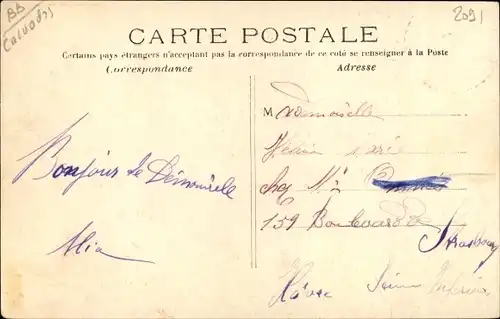 BB
Calvados
2091
CARTE POSTALE
Certains pays étrangers n'acceptant pas la correspondance de ce coté se renseigner à la Poste
Correspondance
Adresse
Mademoiselle
chez Mr
159 Boulevard de
Strasbourg
Hâvre Seine Inférieure
Bonjour de Démouville
Alia